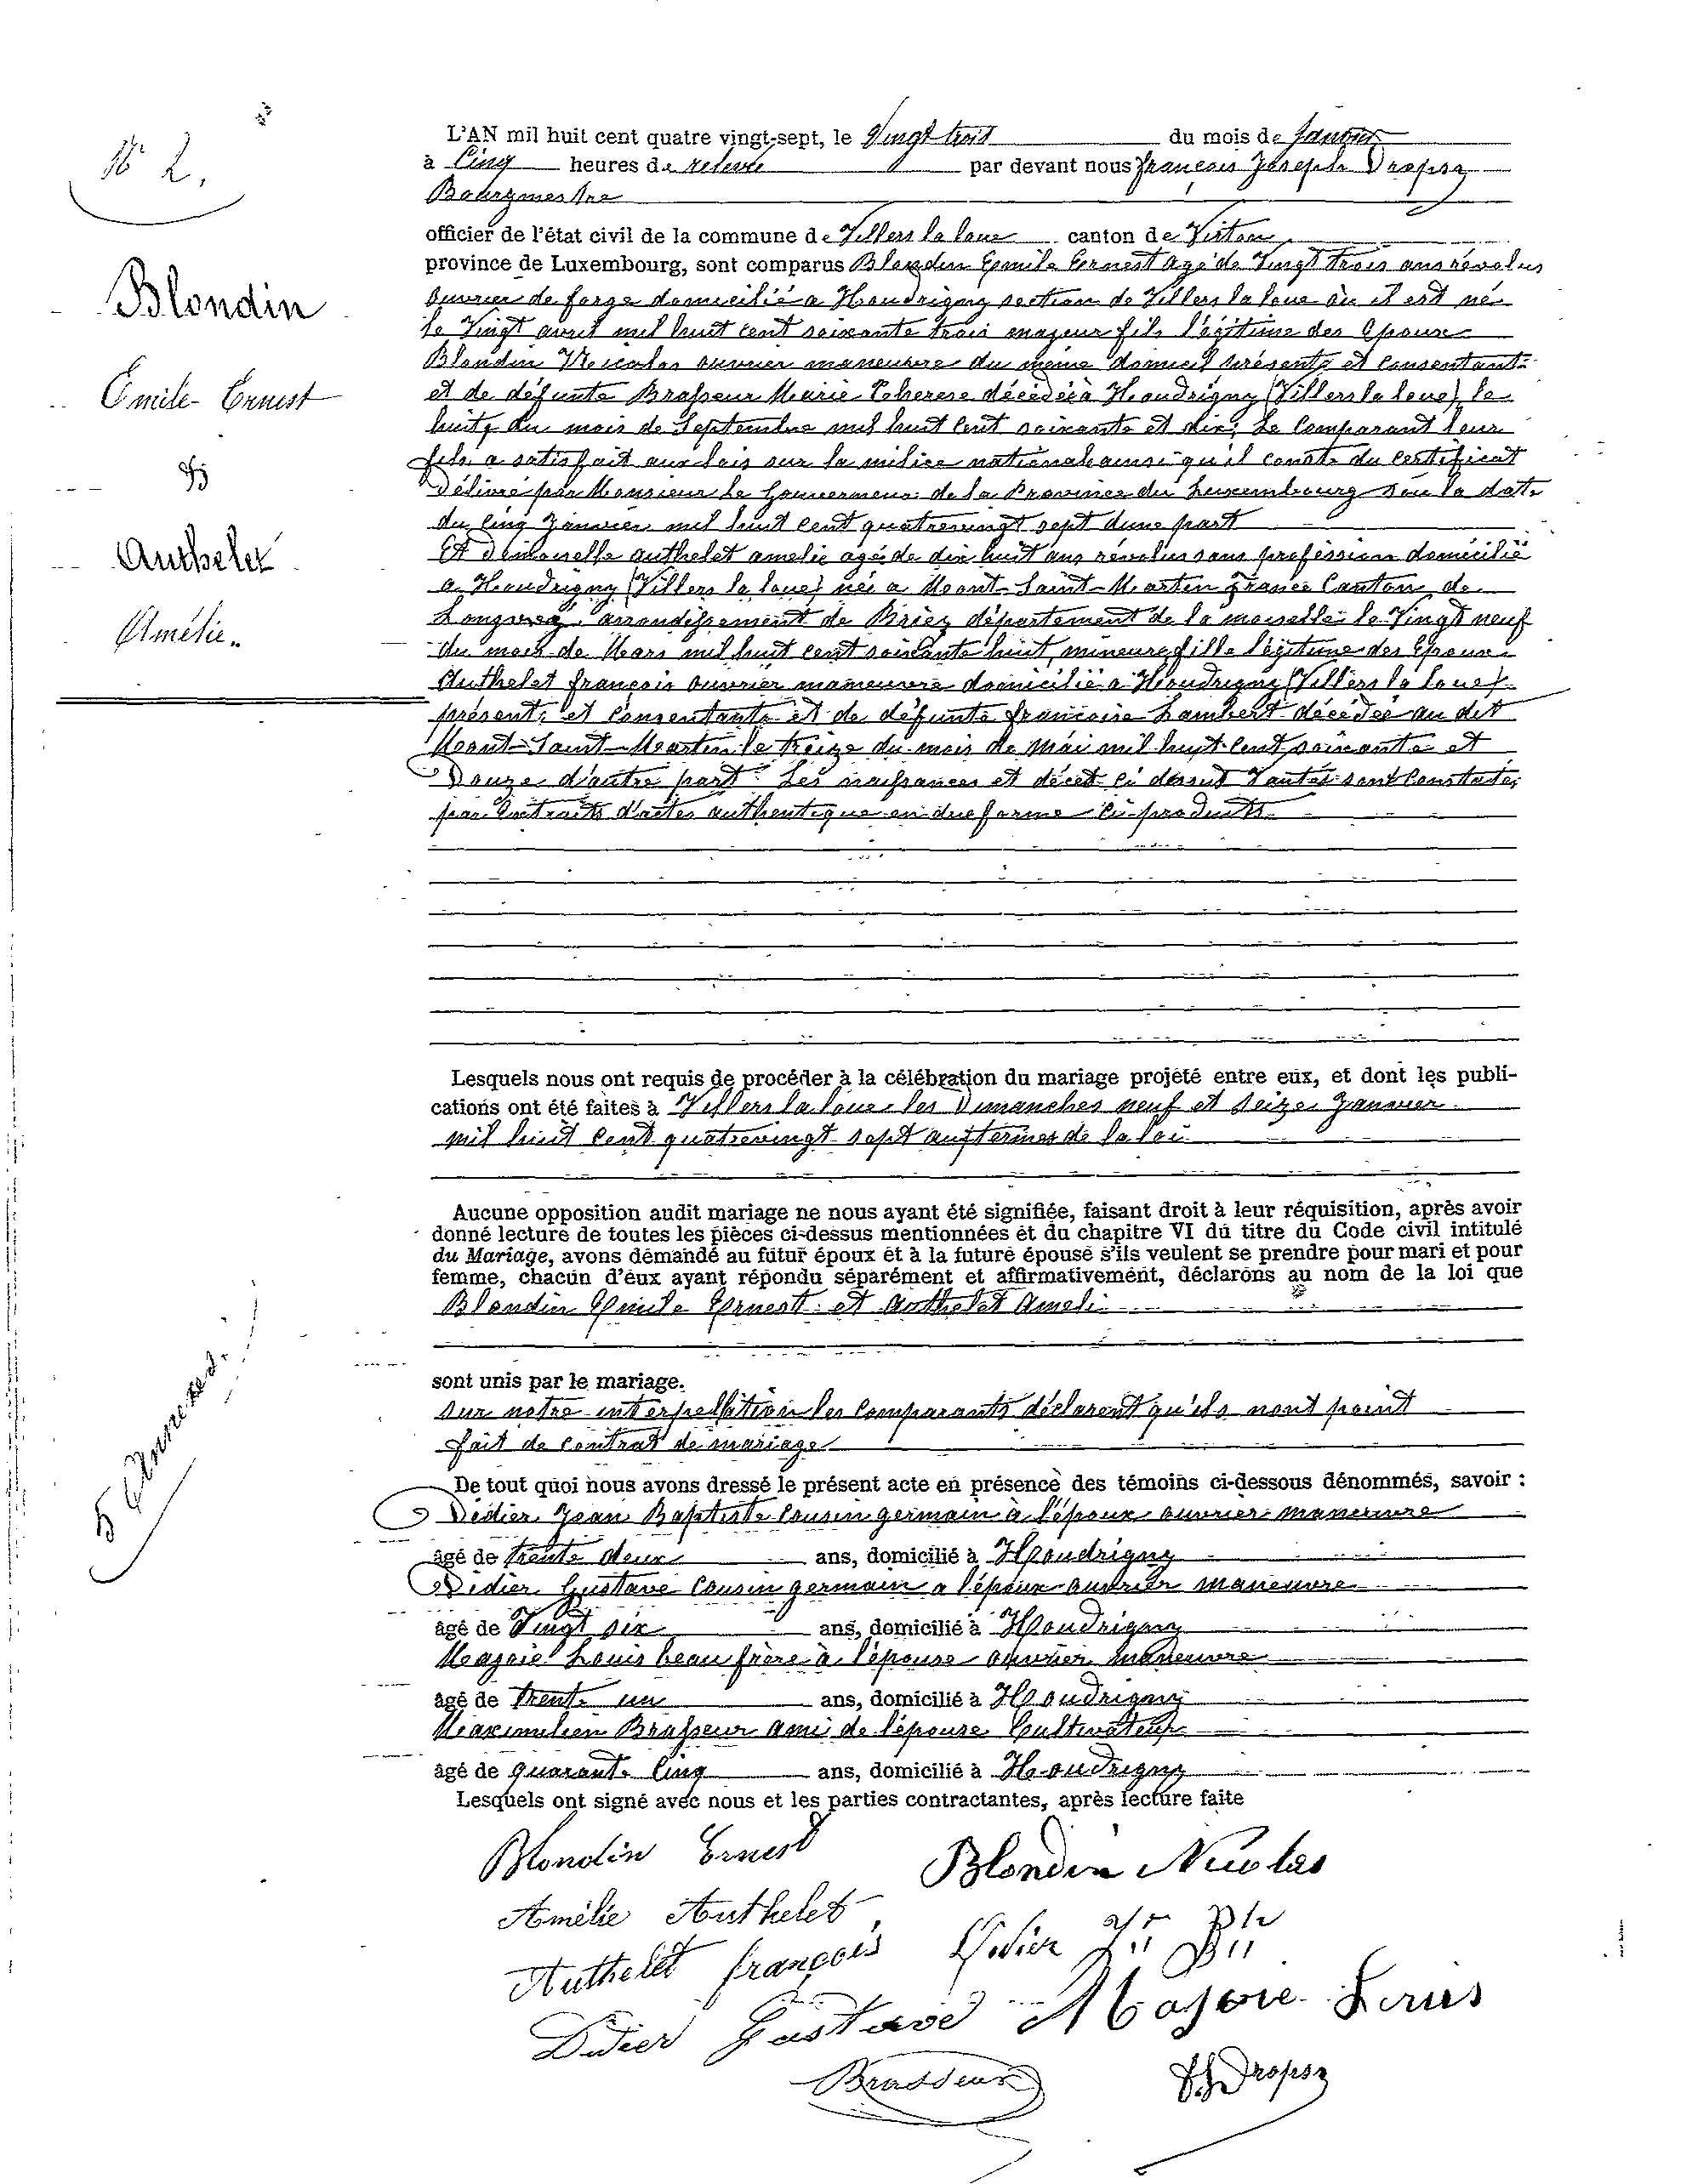 N° 2.
Blondin
Emile Ernest
&
Authelet
Amélie.
5 annexes.
L'AN mil huit cent quatre vingt-sept, le Vingt trois du mois de Janvier
à Cinq heures de relevée par devant nous françois Joseph Dropsy
Bourgmestre
officier de l'état civil de la commune de Villers la loue canton de Virton
province de Luxembourg, sont comparus Blondin Emile Ernest agé de Vingt trois ans révolus
ouvrier de forge domicilié a Houdrigny section de Villers la loue où il est né
le Vingt avril mil huit cent soixante trois majeur fils légitime des Epoux
Blondin Nicolas ouvrier maneuvre du même domicil présente et consentant
et de défunte Brasseur Marie Thérese décédée à Houdrigny (Villers la loue) le
huit du mois de Septembre mil huit cent soixante et dix; Le Comparant leur
fils a satisfait aux lois sur la milice nationale ainsi qu'il conste du certificat
Délivré par Monsieur le Gouverneur de la Province du Luxembourg sou la date
du Cinq Janvier mil huit cent quatrevingt sept dune part
Et Demoiselle authelet amelie agée de dix huit ans révolus sans profession domicilié
a Houdrigny (Villers la loue) née a Mont-Saint-Martin france Canton de
Longwy arrondissement de Briey département de la moselle le Vingt neuf
du mois de Mars mil huit cent soixante huit, mineure fille légitime des Epoux
Authelet françois ouvrier maneuvre domicilié a Houdrigny (Villers la loue)
présent et consentante et de défunte francoise Lambert décédée au dit
Mont-Saint-Martin le treize du mois de mai mil huit cent soixante et
Douze d'autre part. Les naissances et décet ci dessus sont Constatés
par Extraits d'actes authentique en due forme ci-produits
Lesquels nous ont requis de procéder à la célébration du mariage projeté entre eux, et dont les publi-
cations ont été faites à Villers la loue les Dimanches neuf et seize Janvier
mil huit cent quatrevingt sept aux termes de la loi
Aucune opposition audit mariage ne nous ayant été signifiée, faisant droit à leur réquisition, après avoir
donné lecture de toutes les pièces ci-dessus mentionnées et du chapitre VI du titre du Code civil intitulé
du Mariage, avons demandé au futur époux et à la future épouse s'ils veulent se prendre pour mari et pour
femme, chacun d'eux ayant répondu séparément et affirmativement, déclarons au nom de la loi que
Blondin Emile Ernest et Authelet Ameli
sont unis par le mariage.
sur notre interpellation les Comparants déclarent qu'ils nont point
fait de contrat de mariage
De tout quoi nous avons dressé le présent acte en présence des témoins ci-dessous dénommés, savoir :
Didier Jean Baptiste cousin germain à l'époux ouvrier maneuvre
âgé de trente deux ans, domicilié à Houdrigny
Didier Gustave Cousin germain a l'époux ouvrier maneuvre
âgé de Vingt six ans, domicilié à Houdrigny
Majoie Louis beau frère à l'épouse ouvrier maneuvre
âgé de trente un ans, domicilié à Houdrigny
Maximilien Brasseur ami de l'épouse Cultivateur
âgé de quarante Cinq ans, domicilié à Houdrigny
Lesquels ont signé avec nous et les parties contractantes, après lecture faite
Blondin Ernest Blondin Nicolas
Amélie Authelet
Authelet françois Didier Jn Bte
Didier Gustave Majoie Louis
Brasseur FJDropsy